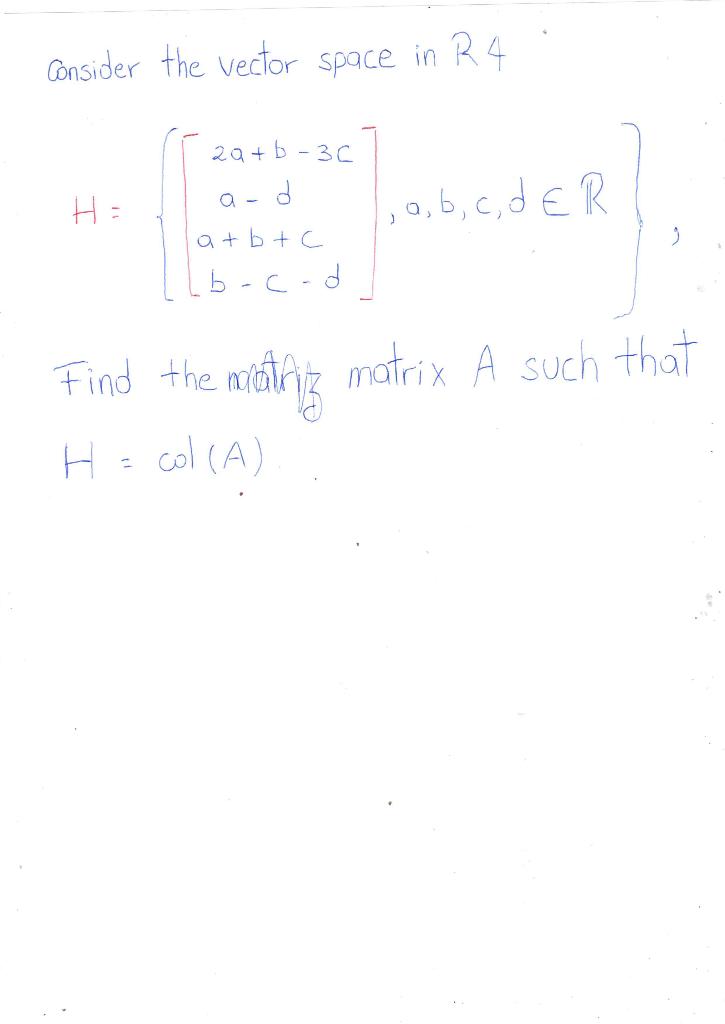 Consider the vector space in R 4
H = { [ 2a + b - 3c
a - d
a + b + c
b - c - d ] , a, b, c, d ∈ ℝ } ,
Find the matrix A such that
H = col (A)